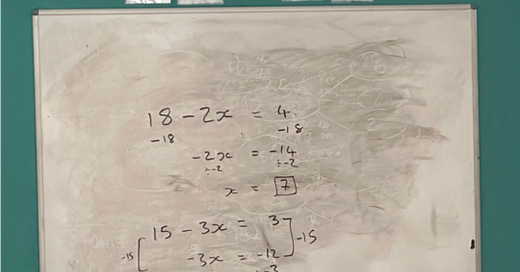 18 - 2x = 4
-18 -18
-2x = -14
÷-2 ÷-2
x = 7
15 - 3x = 3
-15 -15
-3x = -12